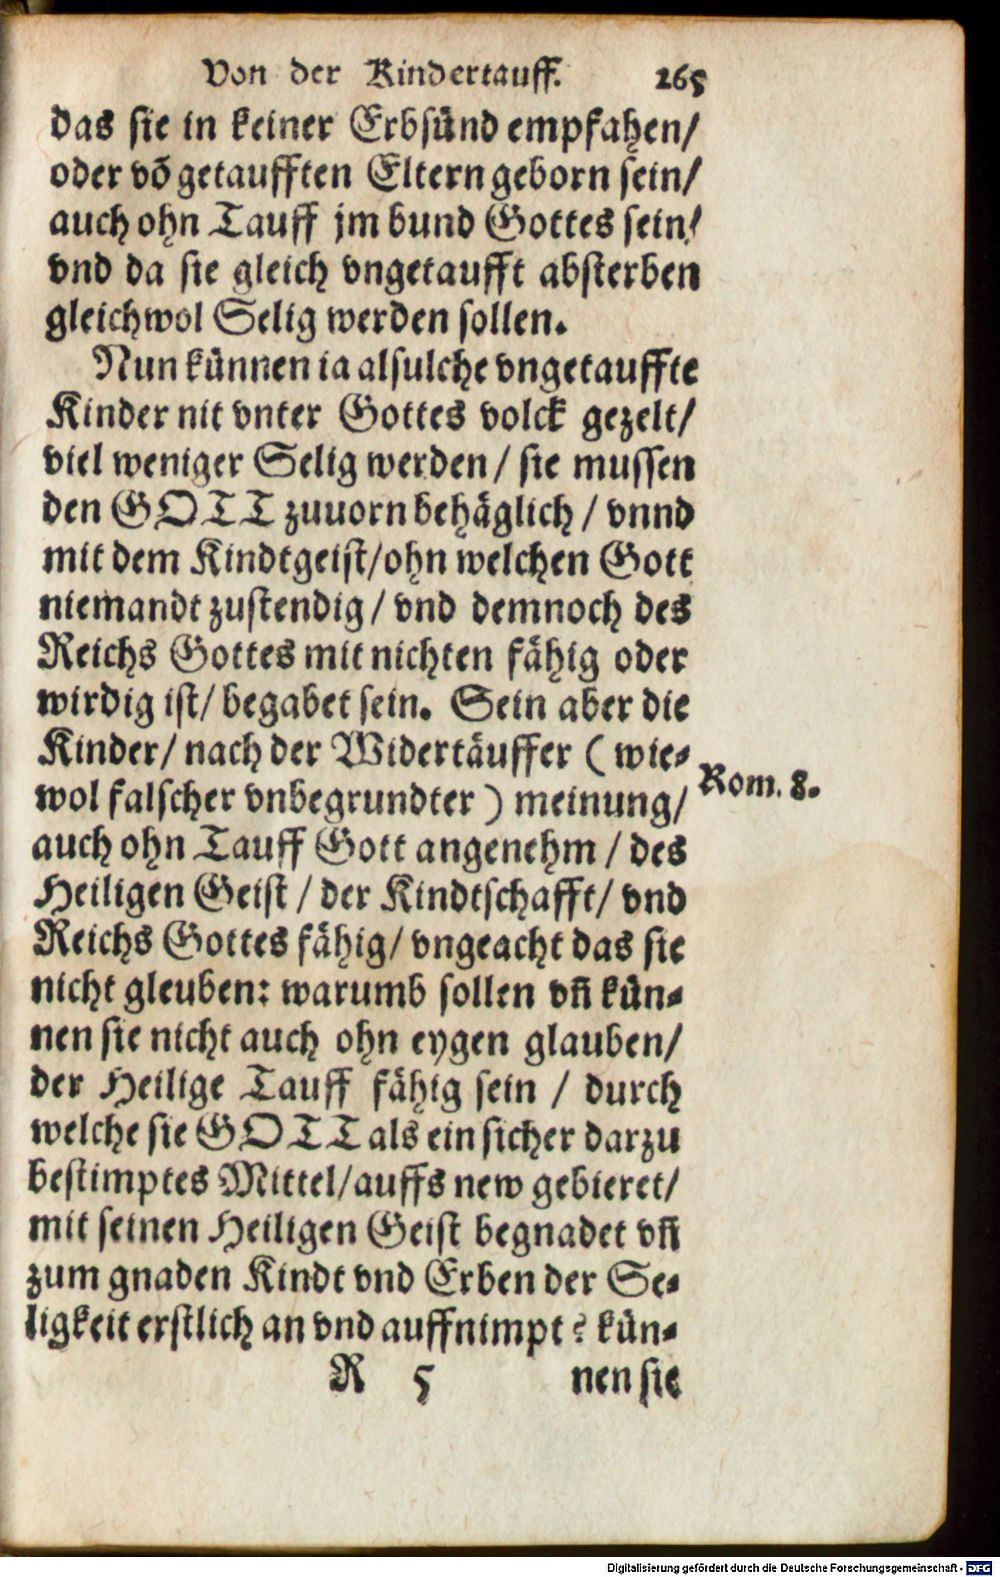 Von der Kindertauff. 265
das sie in keiner Erbsünd empfahen/
oder võ getaufften Eltern geborn sein/
auch ohn Tauff jm bund Gottes sein/
vnd da sie gleich vngetaufft absterben
gleichwol Selig werden sollen.
Nun künnen ia alsulche vngetauffte
Kinder nit vnter Gottes volck gezelt/
viel weniger Selig werden / sie mussen
den GOTT zuuorn behäglich / vnnd
mit dem Kindtgeist/ohn welchen Gott
niemandt zustendig / vnd demnoch des
Reichs Gottes mit nichten fähig oder
wirdig ist/ begabet sein. Sein aber die
Kinder/ nach der Widertäuffer ( wie-
wol falscher vnbegrundter ) meinung/
Rom. 8.
auch ohn Tauff Gott angenehm / des
Heiligen Geist / der Kindtschafft/ vnd
Reichs Gottes fähig/ vngeacht das sie
nicht gleuben: warumb sollen vñ kün-
nen sie nicht auch ohn eygen glauben/
der Heilige Tauff fähig sein / durch
welche sie GOTT als ein sicher darzu
bestimptes Mittel/auffs new gebieret/
mit seinen Heiligen Geist begnadet vñ
zum gnaden Kindt vnd Erben der Se-
ligkeit erstlich an vnd auffnimpt? kün-
R 5 nen sie
Digitalisierung gefördert durch die Deutsche Forschungsgemeinschaft - DFG